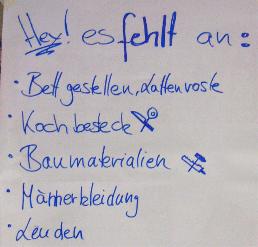 Hey! es fehlt an:
· Bettgestellen, Lattenroste
· Kochbesteck
· Baumaterialien
· Männerkleidung